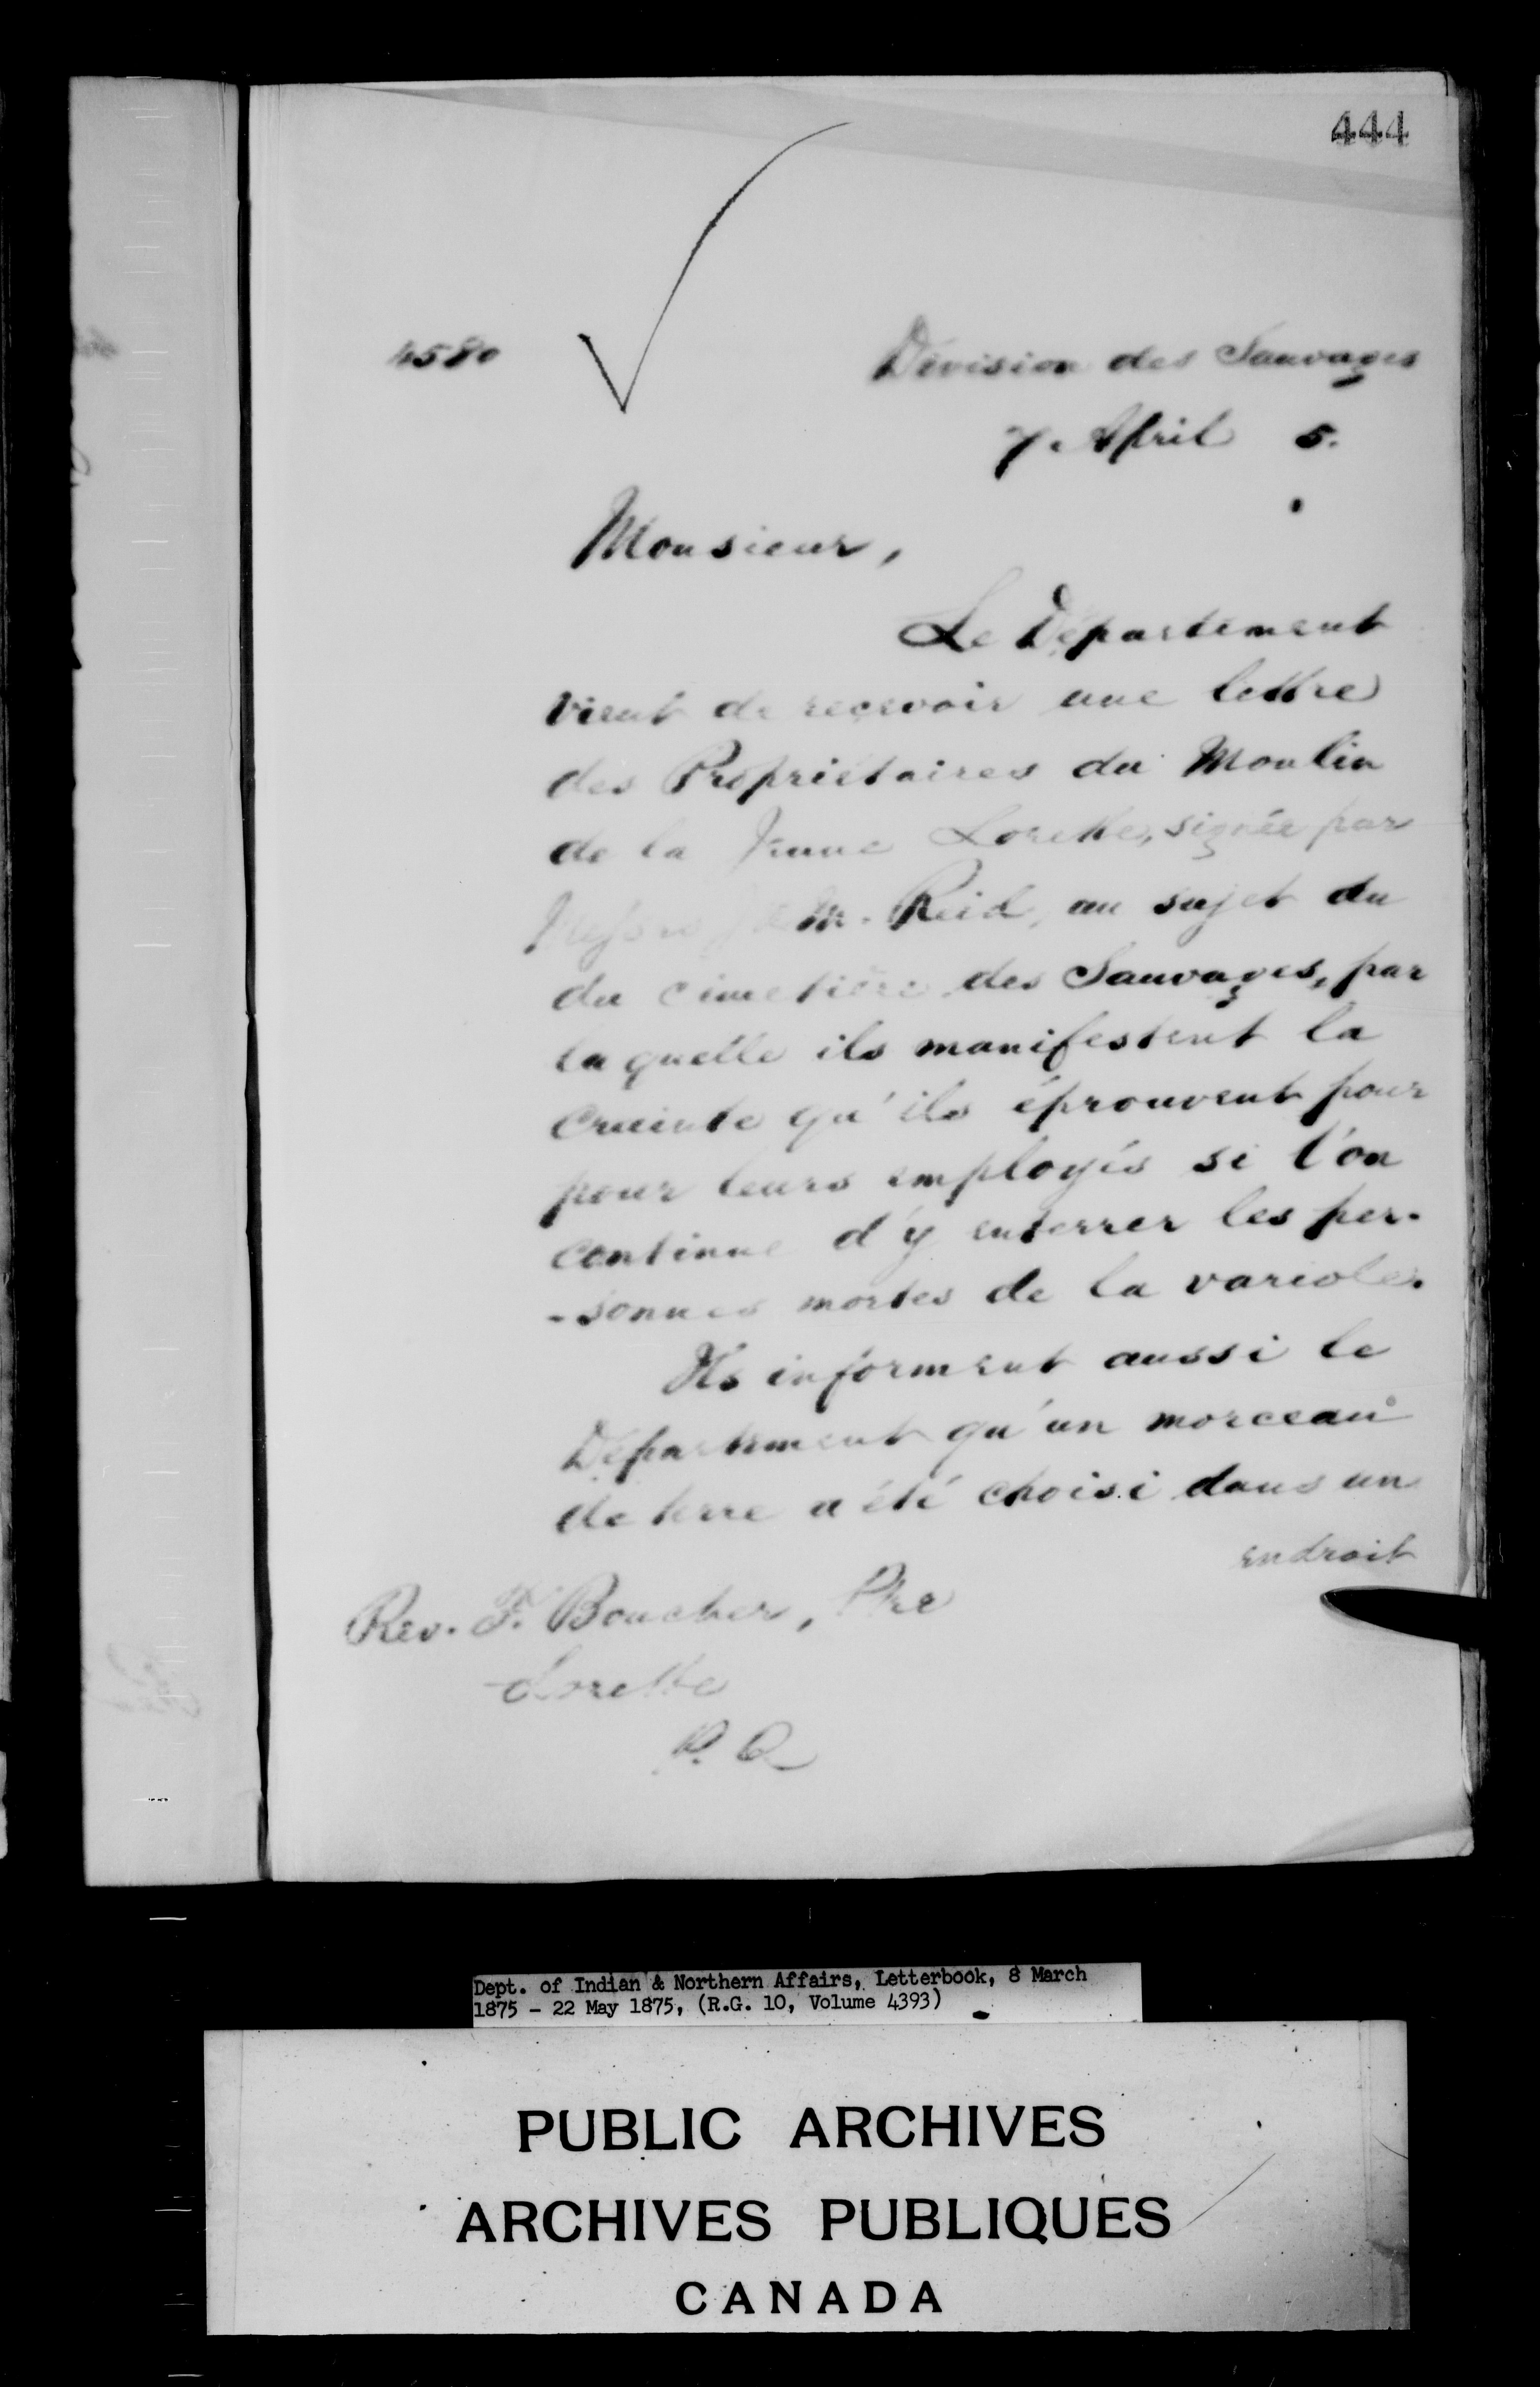 444
4580
Division des Sauvages
7. April 5.
Monsieur,
Le Département
vient de recevoir une lettre
des Propriétaires du Moulin
de la Jeune Lorette, signée par
Messrs J & M. Reid, au sujet du
du cimetière des Sauvages, par
laquelle ils manifestent la
crainte qu'ils éprouvent pour
pour leurs employés si l'on
continue d'y enterrer les per-
-sonnes mortes de la variole.
Ils informent aussi le
Département qu'un morceau
de terre a été choisi dans un
endroit
Rev. F. Boucher, Ptre
Lorette
P.Q
Dept. of Indian & Northern Affairs, Letterbook, 8 March
1875 - 22 May 1875, (R.G. 10, Volume 4393)
PUBLIC ARCHIVES
ARCHIVES PUBLIQUES
CANADA